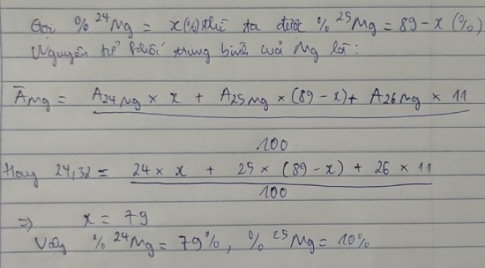 Gọi % ²⁴Mg = x(%) thì ta được % ²⁵Mg = 89 - x (%)
Nguyên tử khối trung bình của Mg là:
A̅Mg = A24Mg × x + A25Mg × (89 - x) + A26Mg × 11
100
Hay 24,32 = 24 × x + 25 × (89 - x) + 26 × 11
100
⇒ x = 79
Vậy % ²⁴Mg = 79%, % ²⁵Mg = 10%